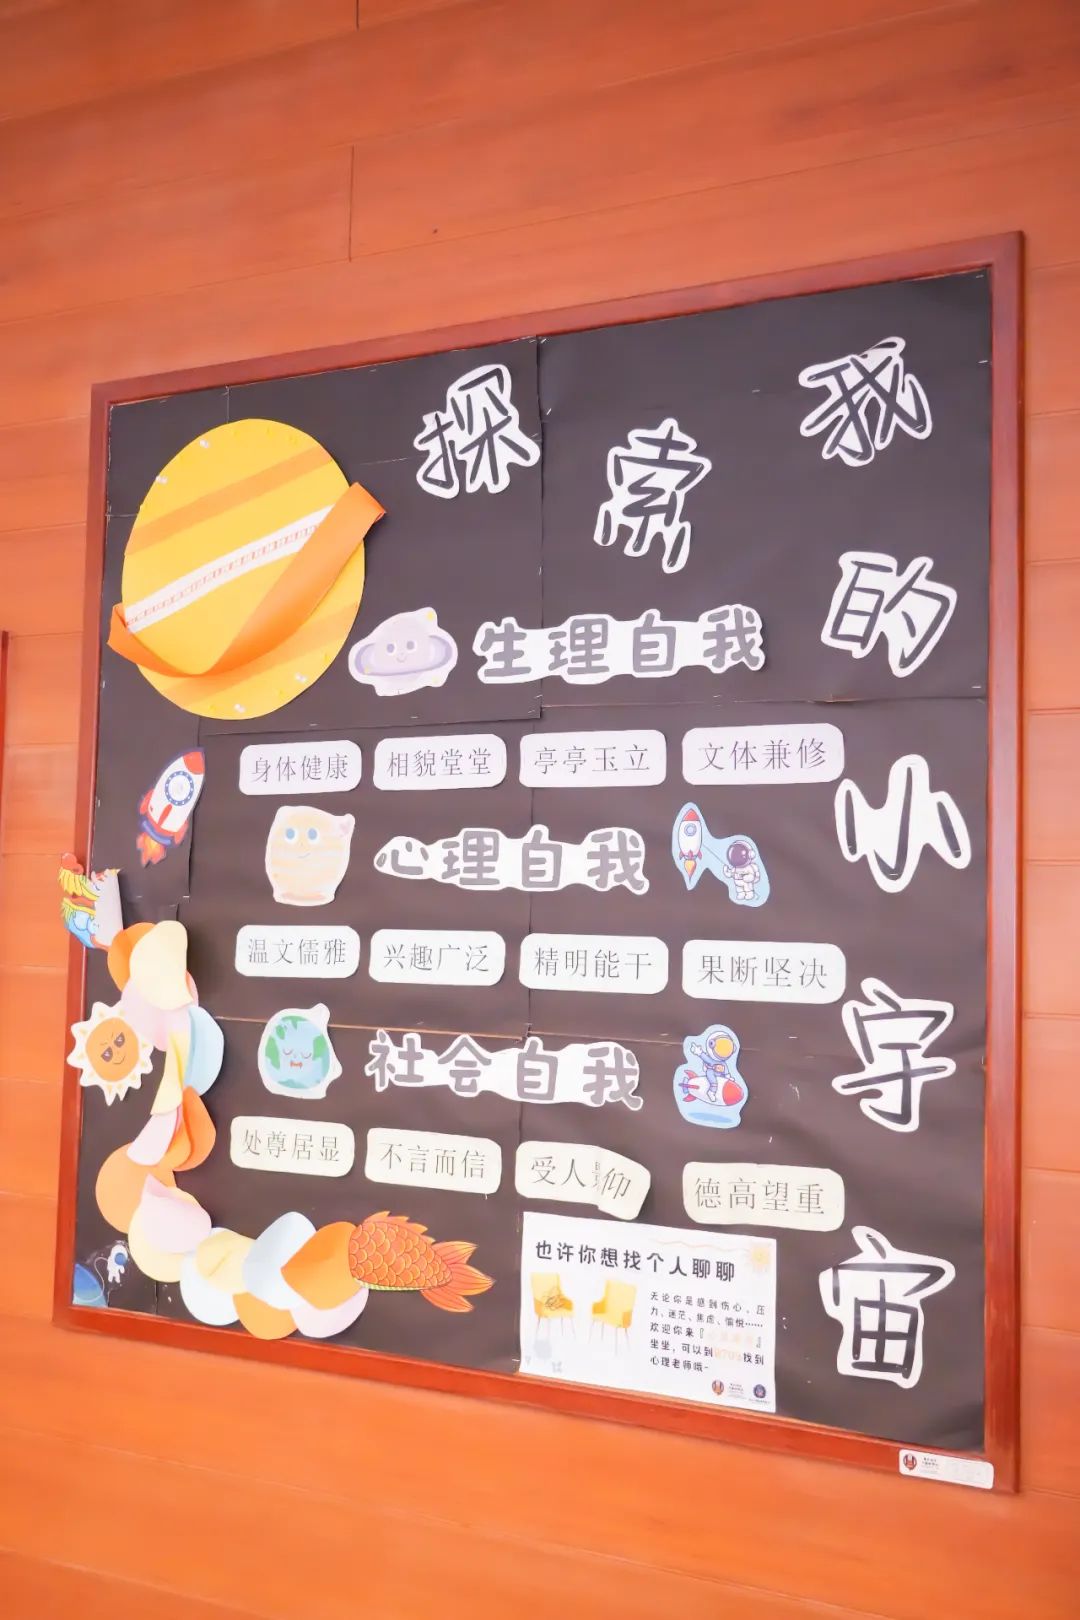 探索我的小宇宙
生理自我
身体健康 相貌堂堂 亭亭玉立 文体兼修
心理自我
温文儒雅 兴趣广泛 精明能干 果断坚决
社会自我
处尊居显 不言而信 受人仰 德高望重
也许你想找个人聊聊
无论你是感到伤心、压
力、迷茫、焦虑、愉悦……
欢迎你来『
』
坐坐，可以到 找到
心理老师哦~